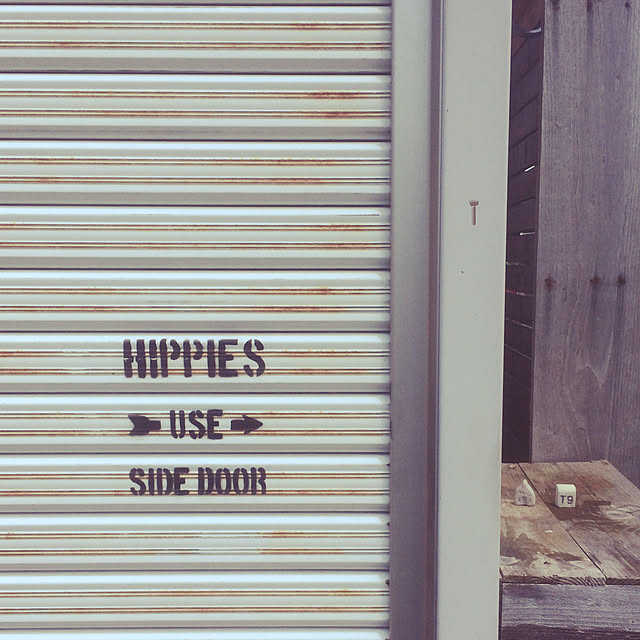 HIPPIES
USE
SIDE DOOR
T9